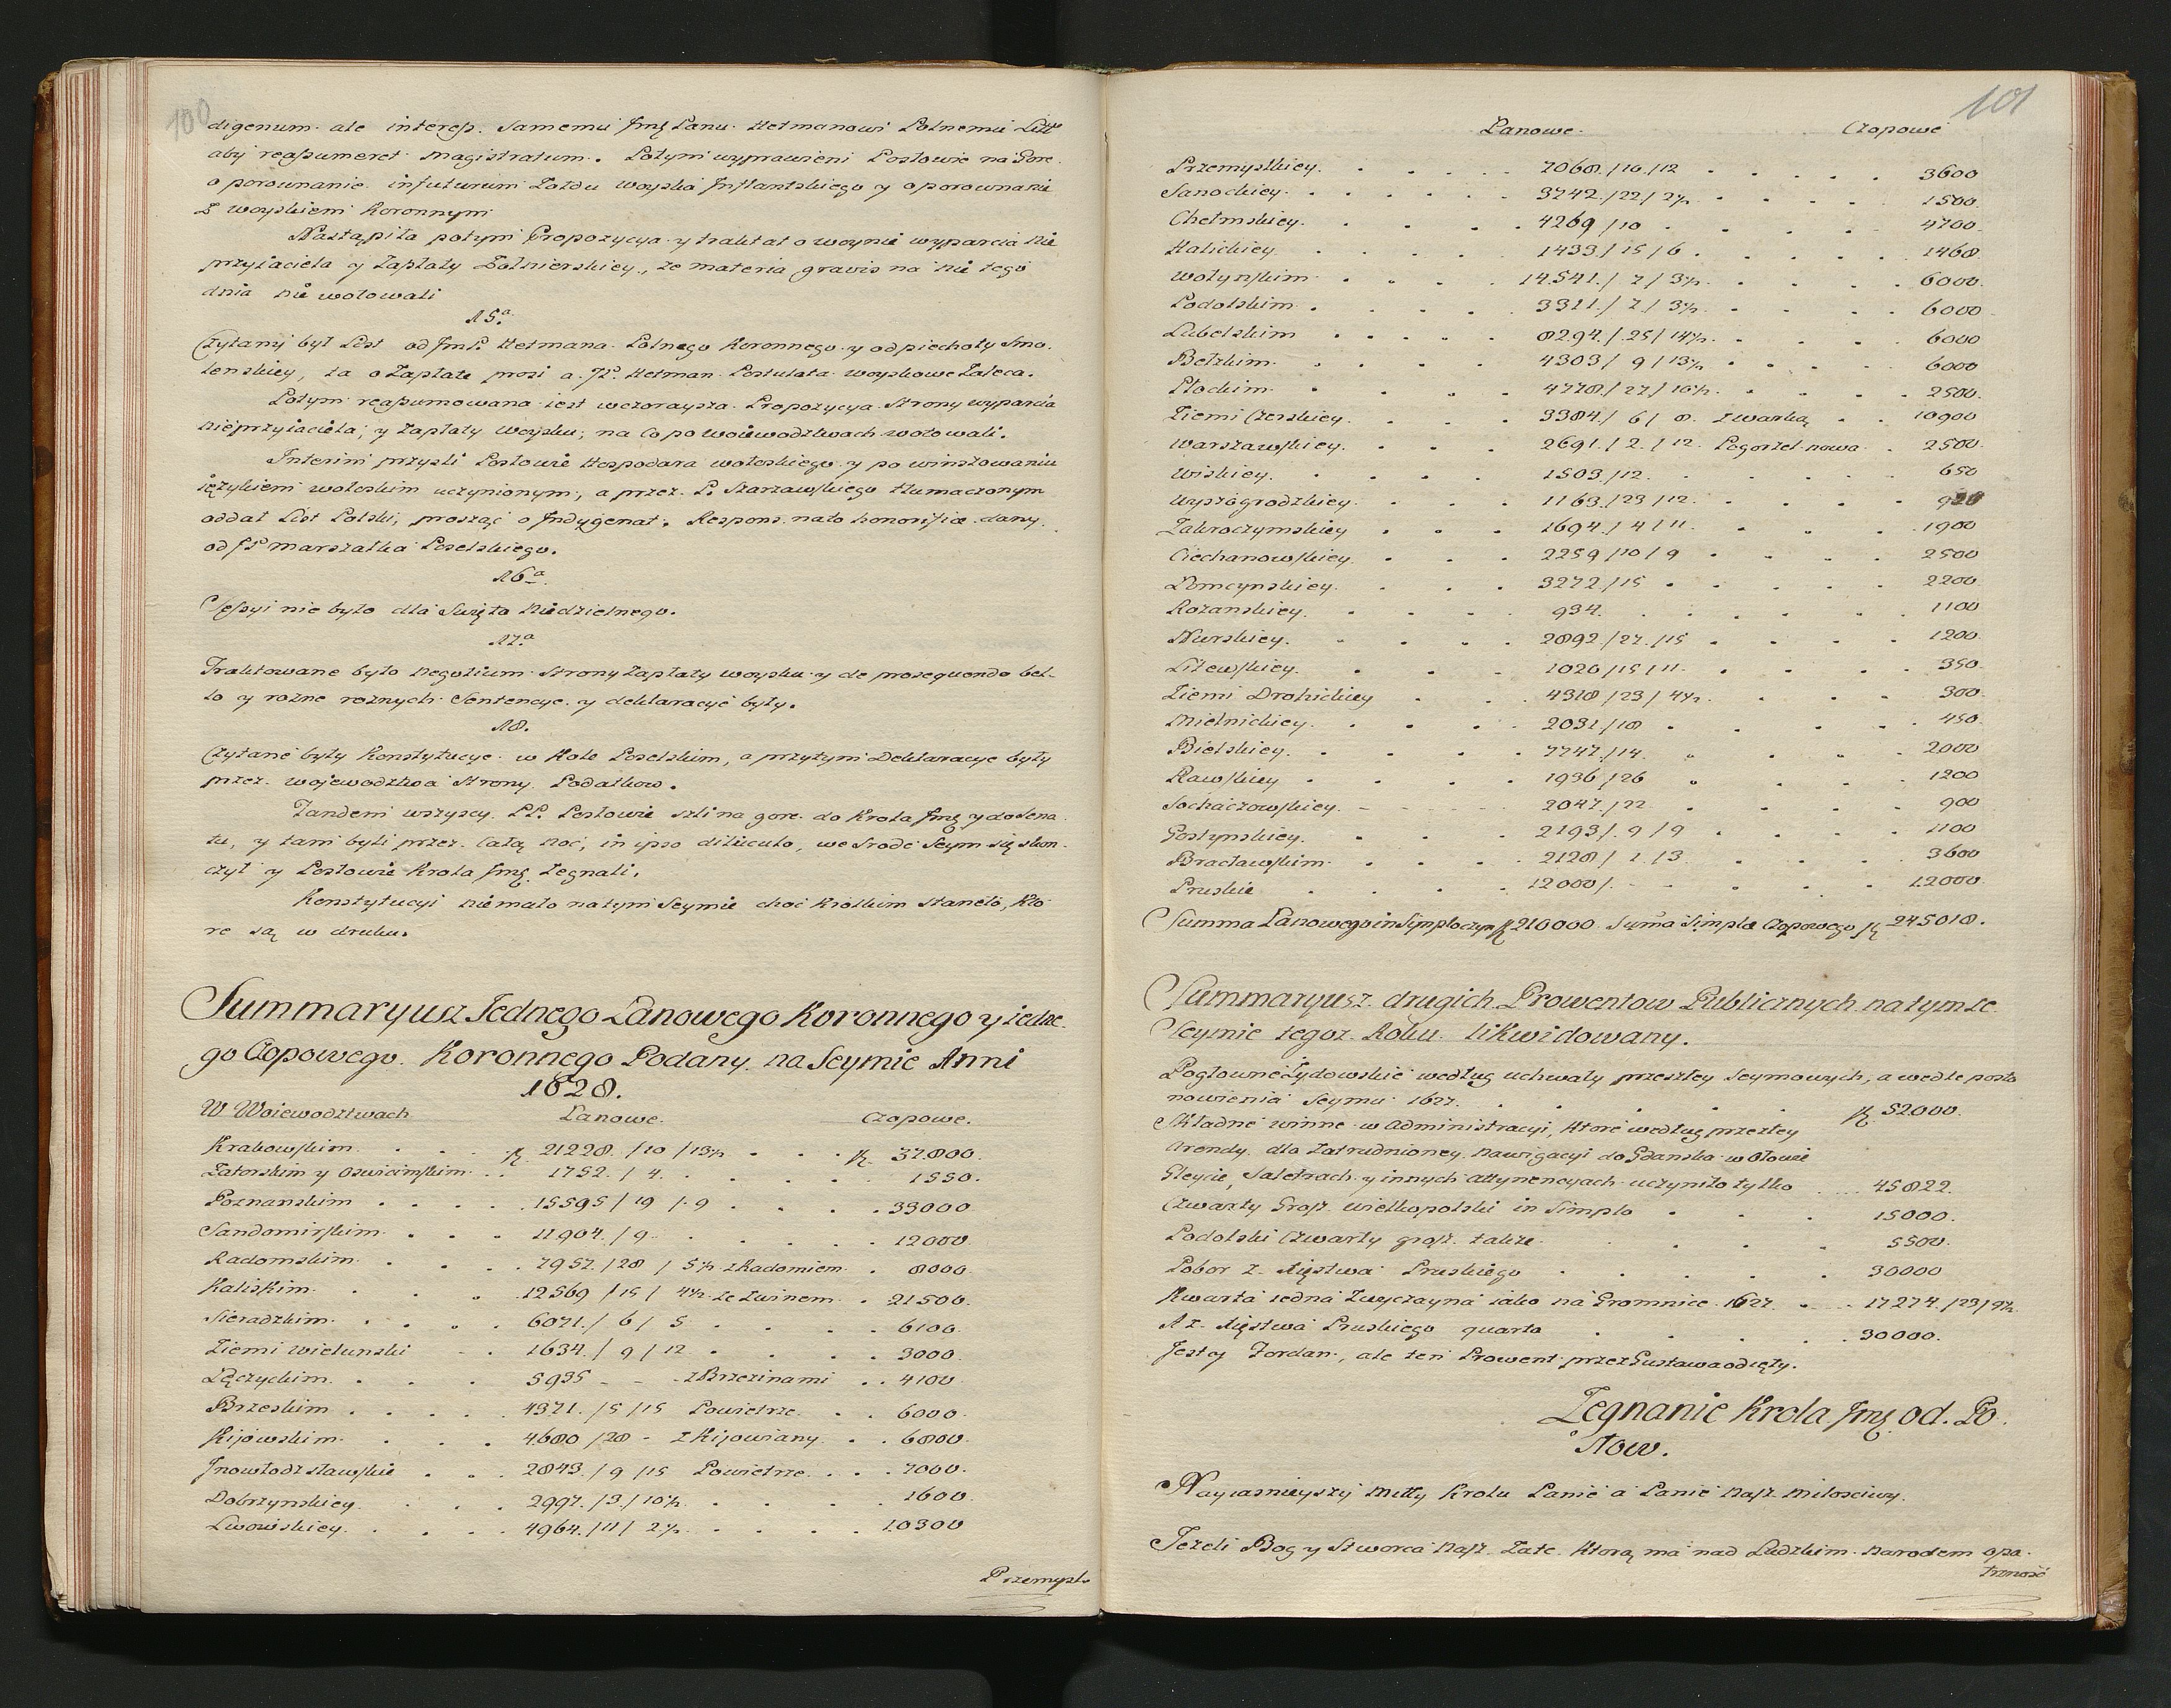 100
digenum. ale interess. samemu Jmę Panu. Hetmanowi Polnemu Litt
aby reassumeret magistratum. Potym wyprawieni Posłowie na Gore
o porownanie infuturum Zołdu woyska Inflantskiego y oporownanie
z woyskiem Koronnym
Nastąpiła potym Propozycya y traktat o woynie wyparcia nie
przyiaciela y zapłaty Żołnierskiey, że materia gravis na nie tego
dnia nie wotowali
15.a
Czytany był List od JmP. Hetmana Polnego Koronnego y od piechoty Smo.
lenskiey, ta o Zapłate prosi a JP. Hetman Postulata woyskowe Zaleca.
Potym reassumowana iest wczoraysza Propozycya Strony wyparcia
nieprzyiaciela, y zapłaty woysku, na co po woiewodztwach wotowali.
Interim przyszli Posłowie Hospodara wołoskiego y po winszowaniu
ięzykiem wołoskim uczynionym, a przez P. Szarzawskiego tłumaczonym
oddał List Polski, prosząc o Indygenat. Respons nato honorifice dany
od JP Marszałka Poselskiego.
16a.
Sessyi nie było dla Swięta Niedzielnego.
17.a
Traktowane było negotium Strony zapłaty woysku y de prosequendo bel-
lo y rożne rożnych Sentencye y deklaracye były.
18.
Czytane były Konstytucye w Kole Poselskim, a przytym Deklaracye były
przez wojewodztwa Strony Podatkow.
Tandem wszyscy PP. Posłowie szli na gore do Krola Jmę y do Sena
tu, y tam byli przez całą noc, in ipso diliculo, we Srode Seym się skon-
czył y Posłowie Krola Jmę żegnali.
Konstytucyi niemało na tym Seymie choć krotkim staneło, Kto
re są w druku.
Summaryusz Jednego Łanowego Koronnego y iedne-
go Czopowego Koronnego Podany na Seymie Anni
1628.
W Woiewodztwach Łanowe. Czopowe.
Krakowskim. 21228./10/13½ 37800.
Zatorskim y Oswiecimskim. 1752./4. 1550.
Poznanskim 15595/19/9 33000
Sandomirskim 11904./9. 12000.
Radomskim. 7957./28/5½ z Radomiem. 8000.
Kaliskim. 12569/15/4½ ze Zwinem. 21500.
Sieradzkim. 6071./6/5 6100.
Ziemi wielunski 1634./9/12 3000.
Łęczyckim. 5935 - - z Brzezinami 4100
Brzeskim 4371./5/15 Powietrze. 6000.
Kijowskim. 4680/28 - z Kijowiany 6800.
Jnowłodzsławskie 2843./9/15 Powietrze. 7000.
Dobrzynskiey. 2997./3/10½ 1600.
Lwowskiey. 4964./11/2½ 10300
Przemysl.
101
Łanowe. Czopowe
Przemyslkiey. 7068./10/12 3600
Sanockiey. 3742./22/2½ 1500.
Chełmskiey. 4269/10 4700.
Halickiey. 1433/15/6 1468.
Wołynskim 14541./7/3½ 6000.
Podolskim. 3321./7/3½ 6000
Lubelskim 8294./25/14½ 6000
Bełzkim. 4303/9/13½ 6000
Płockim 4778/27/16½ 2500.
Ziemi Czerskiey. 3384./6/8. z Warką 10900
Warszawskiey. 2691./2./12. Pogorzel. nowa. 2500.
Wiskiey. 1503/12. 650
Wyszogrodzkiey. 1163./23/12. 920
Zakroczymskiey 1694./4/11. 1900
Ciechanowskiey. 2259/10/9 2500
Łomczynskiey. 3272/15 2200
Rożanskiey. 934. 1100
Nurskiey. 2892/27./15 1200
Liwskiey. 1026/15/11. 350
Ziemi Drohickiey 4318/23/4½ 300
Mielnickiey. 2031/18 450.
Bielskiey. 7747./14. 2000
Rawskiey 1936/26 1200
Sochaczowskiey. 2047./22 900
Gostynskiey. 2193/9/9 1100
Bracławskim. 2128/1/3 3600
Pruskie 12000/. 12000
Summa Łanowego in Simplo czyn 210000. Suma Simpla Czopowego 245018.
Summaryusz drugich Prowentow Publicznych na tymże
Seymie tegoż Roku likwidowany.
Pogłowne Żydowskie według uchwały przeszłey Seymowych, a wedle posta
nowienia Seymu 1627. 52000.
Składne winne w Administracyi, ktore według przeszłey
Arendy dla zatrudnioney nawigacyi do Gdanska w Ołowie
Gleycie, Saletrach y innych attynencyach uczyniło tylko 45822.
Czwarty Grosz wielkopolski in Simplo 15000.
Podolski Czwarty grosz także 5500.
Pobor z Xięstwa Pruskiego 30000
Kwarta iedna Zwyczayna iako na Gromnice 1627. 17274./29/9½
A z Xięstwa Pruskiego quarta 30000.
Jest y Jordan., ale ten Prowent przez Gustawa odięty.
Żegnanie Krola Jmę od. Po
słow.
Nayiasnieyszy Miłły Krolu Panie a Panie nasz Miłosciwy.
Jeżeli Bog y Stworca nasz Łate. ktorą ma nad Ludzkim narodem opa-
trzność